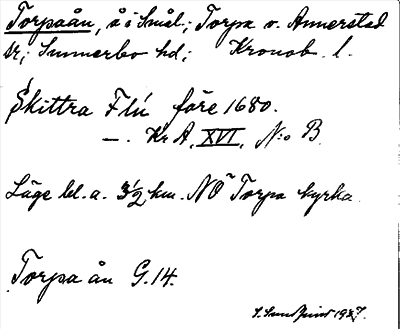 Torpaån, å i Smål; Torpa o. Annerstad
sr; Sunnerbo hd; Kronob. l.
Skittra Flú före 1680.
—. Kr A, XVI, N:o B.
Läge bl. a. 3½ km. NO Torpa kyrka
Torpa ån G.14.
S. Sundqvist 1927.